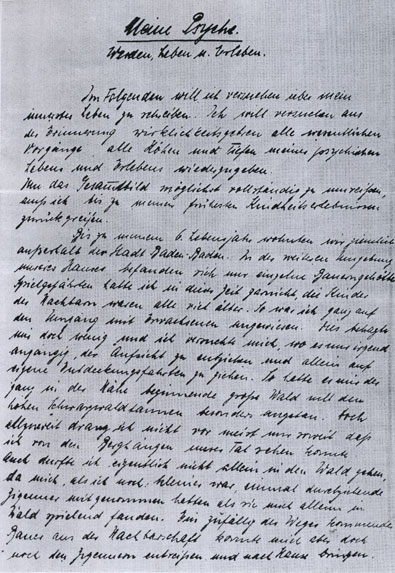 Meine Psyche.
Werden, Leben u. Erleben.
Im Folgenden will ich versuchen über mein
innerstes Leben zu schreiben. Ich will versuchen aus
der Erinnerung wirklichkeitsgetreu alle wesentlichen
Vorgänge alle Höhen und Tiefen meines psychischen
Lebens und Erlebens wiederzugeben.
Um das Gesamtbild möglichst vollständig zu umreißen,
muss ich bis zu meinen frühesten Kindheitserlebnissen
zurückgreifen.
Bis zu meinem 6. Lebensjahr wohnten wir ziemlich
außerhalb der Stadt Baden-Baden. In der weiteren Umgebung
unseres Hauses befanden sich nur einzelne Bauerngehöfte
Spielgefährten hatte ich in dieser Zeit garnicht, die Kinder
der Nachbarn waren alle viel älter. So war ich ganz auf
den Umgang mit Erwachsenen angewiesen. Dies behagte
mir doch wenig und ich versuchte mich, wo es nur irgend
angängig, der Aufsicht zu entziehen und allein auf
eigene Entdeckungsfahrten zu ziehen. So hatte es mir der
ganz in der Nähe beginnende große Wald mit den
hohen Schwarzwaldtannen besonders angetan. Doch
allzuweit drang ich nicht vor meist nur soweit dass
ich von den Berghängen unser Tal sehen konnte
Auch durfte ich eigentlich nicht allein in den Wald gehen,
da mich, als ich noch kleiner war, einmal durchziehende
Zigeuner mitgenommen hatten als sie mich allein im
Wald spielend fanden. Ein zufällig des Weges kommender
Bauer aus der Nachbarschaft konnte mich aber doch
noch den Zigeunern entreißen und nach Hause bringen.